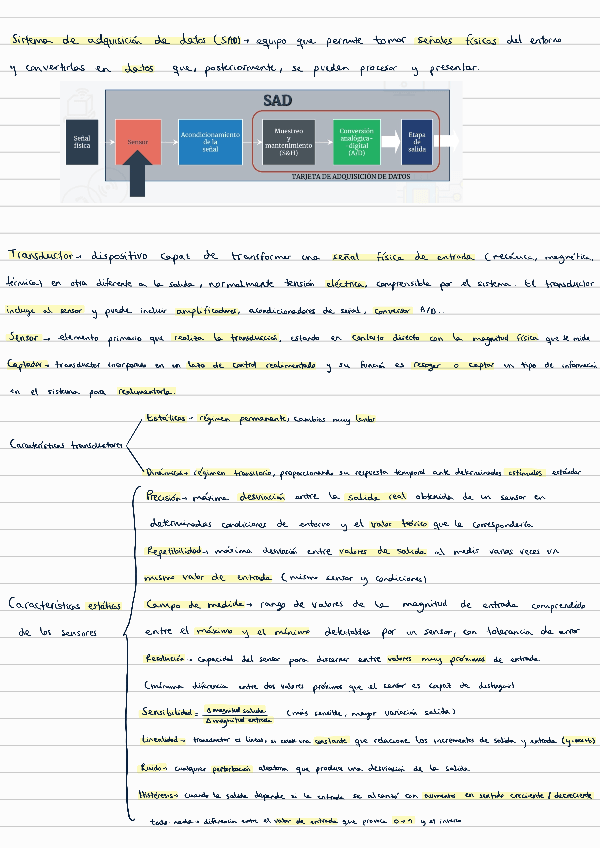 Sistema de adquisición de datos (SAD) → equipo que permite tomar señales físicas del entorno
y convertirlas en datos que, posteriormente, se pueden procesar y presentar.
SAD
Señal física
Sensor
Acondicionamiento de la señal
Muestreo y mantenimiento (S&H)
Conversión analógica-digital (A/D)
Etapa de salida
TARJETA DE ADQUISICIÓN DE DATOS
Transductor → dispositivo capaz de transformar una señal física de entrada (mecánica, magnética,
térmica) en otra diferente a la salida, normalmente tensión eléctrica, comprensible por el sistema. El transductor
incluye al sensor y puede incluir amplificadores, acondicionadores de señal, conversor A/D..
Sensor → elemento primario que realiza la transducción, estando en contacto directo con la magnitud física que se mide
Captador → transductor incorporado en un lazo de control realimentado y su función es recoger o captar un tipo de información
en el sistema para realimentarla.
Características transductores
Estáticas → régimen permanente, cambios muy lentos
Dinámicas → régimen transitorio, proporcionando su respuesta temporal ante determinados estímulos estándar
Características estáticas
de los sensores
Precisión → máxima desviación entre la salida real obtenida de un sensor en
determinadas condiciones de entorno y el valor teórico que le correspondería
Repetibilidad → máxima desviación entre valores de salida al medir varias veces un
mismo valor de entrada (mismo sensor y condiciones)
Campo de medida → rango de valores de la magnitud de entrada comprendido
entre el máximo y el mínimo detectables por un sensor, con tolerancia de error
Resolución → capacidad del sensor para discernir entre valores muy próximos de entrada
(mínima diferencia entre dos valores próximos que el sensor es capaz de distinguir)
Sensibilidad = Δ magnitud salida / Δ magnitud entrada (más sensible, mayor variación salida)
Linealidad → transductor es lineal, si existe una constante que relacione los incrementos de salida y entrada
Ruido → cualquier perturbación aleatoria que produce una desviación de la salida
Histéresis → cuando la salida depende si la entrada se alcanzó con aumentos en sentido creciente / decreciente
todo-nada → diferencia entre el valor de entrada que provoca 0→1 y el inverso